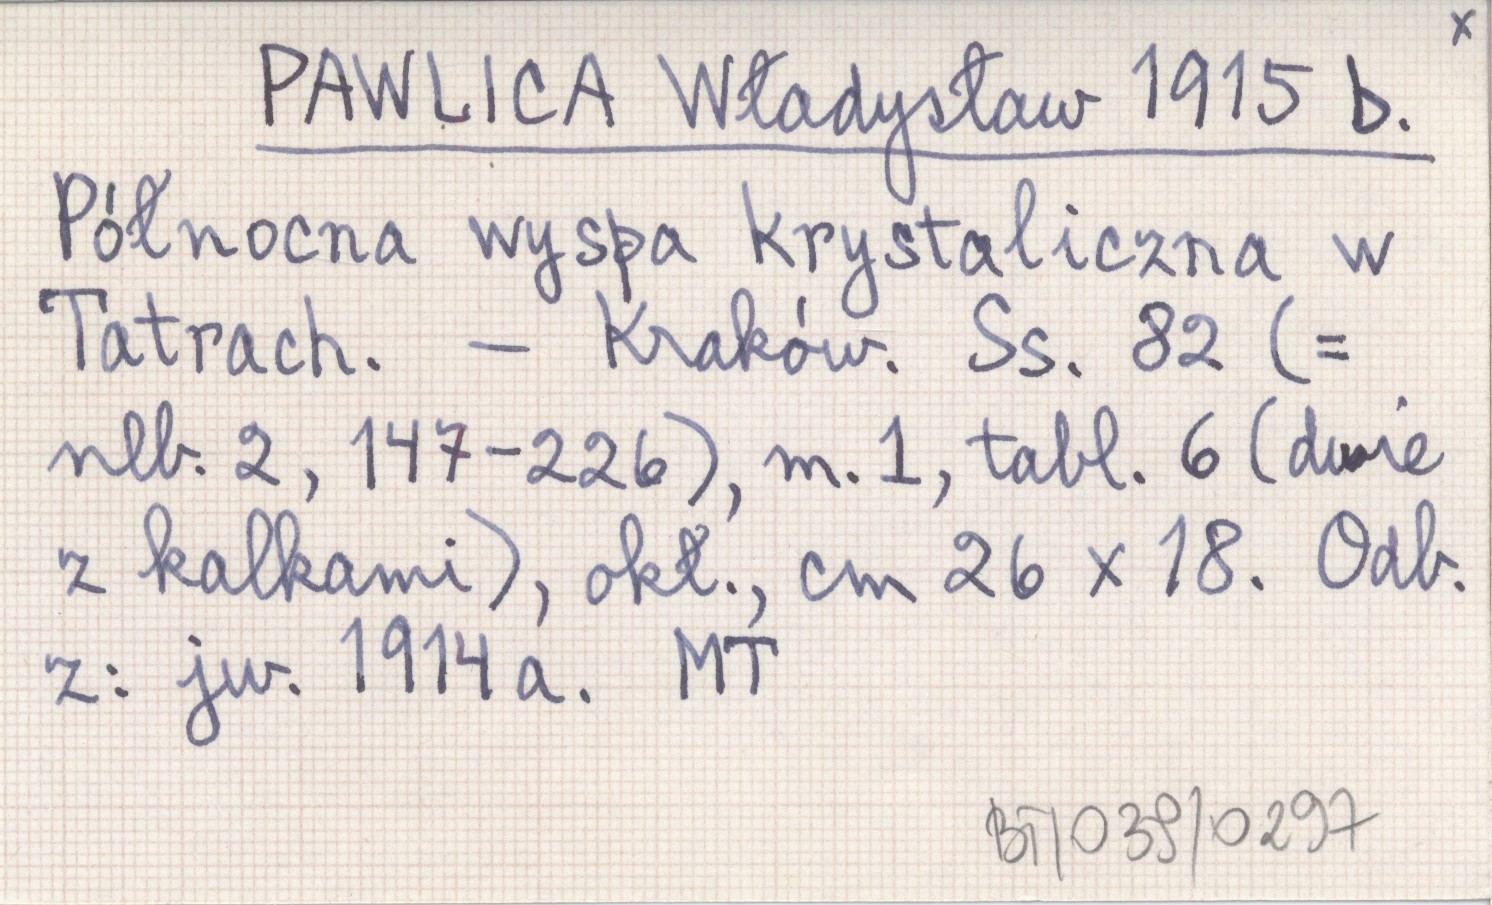 x
PAWLICA Władysław 1915 b.
Północna wyspa krystaliczna w
Tatrach. – Kraków. Ss. 82 (=
nlb. 2, 147-226), m. 1, tabl. 6 (dwie
z kalkami), okł., cm 26 x 18. Odb.
z: jw. 1914a. MT
BT/039/0297